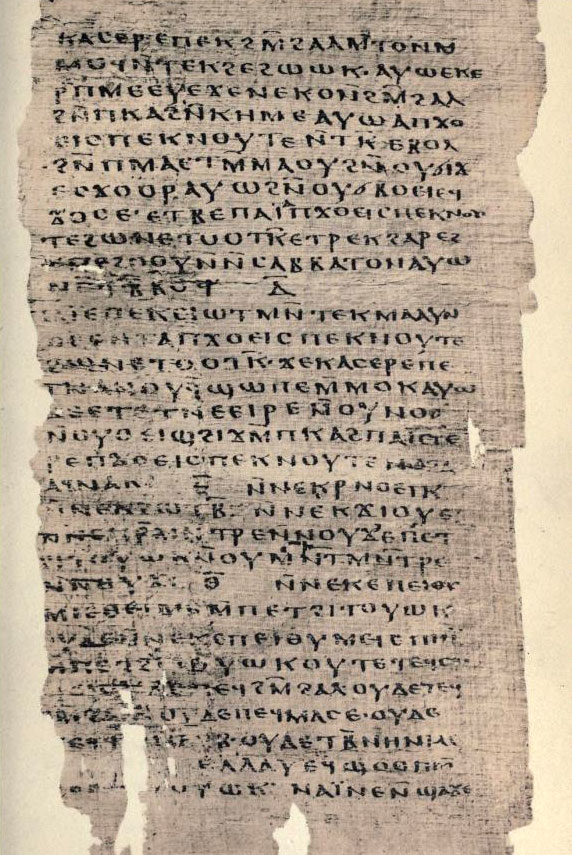 ⲕⲁⲥⲉⲣⲉⲡⲉⲕϩⲙ̄ϩⲁⲗⲙ̄ⲧⲟⲛⲙ
ⲙⲟϥⲛ̄ⲧⲉⲕϩⲉϩⲱⲱⲕ·ⲁⲩⲱⲉⲕⲉ
ⲣ̄ⲡⲙⲉⲉⲩⲉϫⲉⲛⲉⲕⲟⲛϩⲙ̄ϩⲁⲗ
ϩⲙ̄ⲡⲕⲁϩⲛ̄ⲕⲏⲙⲉⲁⲩⲱⲁⲡϫⲟ
ⲉⲓⲥⲡⲉⲕⲛⲟⲩⲧⲉⲛⲧⲕ̄ⲉⲃⲟⲗ
ϩⲙ̄ⲡⲙⲁⲉⲧⲙⲙⲁⲟⲩϩⲛ̄ⲟⲩϭⲓϫ
ⲉⲥϫⲟⲟⲣⲁⲩⲱϩⲛ̄ⲟⲩϭⲃⲟⲉⲓⲉϥ
ϫⲟⲥⲉ·ⲉⲧⲃⲉⲡⲁⲓ̈ⲁⲡϫⲟⲉⲓⲥⲡⲉⲕⲛⲟⲩ
ⲧⲉϩⲱⲛⲉⲧⲟⲟⲧⲕ̄ⲉⲧⲣⲉⲕϩⲁⲣⲉϩ
ⲉⲡⲉϩⲟⲟⲩⲛⲛ̄ⲥⲁⲃⲃⲁⲧⲟⲛⲁⲩⲱ
ⲛⲅ̄ⲧⲃ̄ⲃⲟϥ ⲇ̄
ⲉⲡⲉⲕⲓⲱⲧⲙⲛ̄ⲧⲉⲕⲙⲁⲁⲩⲛ
ⲑⲉⲉⲛⲧⲁⲡϫⲟⲉⲓⲥⲡⲉⲕⲛⲟⲩⲧⲉ
ϩⲱⲛⲉⲧⲟⲟⲧⲕ̄·ϫⲉⲕⲁⲥⲉⲣⲉⲡⲉ
ⲧⲛⲁⲛⲟⲩϥϣⲱⲡⲉⲙⲙⲟⲕⲁⲩⲱ
ϫⲉⲉⲧⲉⲧⲛⲉⲉⲓⲣⲉⲛ̄ⲟⲩⲛⲟϭ
ⲛ̄ⲟⲩⲟⲉⲓϣϩⲓϫⲙ̄ⲡⲕⲁϩⲡⲁⲓ̈ⲉⲧⲉ
ⲣⲉⲡϫⲟⲉⲓⲥⲡⲉⲕⲛⲟⲩⲧⲉ
ⲁϥⲛⲁⲕ ⲋ̄ ⲛ̄ⲛⲉⲕⲣⲛⲟⲉⲓⲕ
ⲛ̄ⲛⲉⲕϩⲱⲧⲃ̄ ⲛ̄ⲛⲉⲕϫⲓⲟⲩⲉ
ⲧⲣⲉⲛ̄ⲛⲟⲩϫⲉⲡⲉⲧ
ϩⲓⲧⲟⲩⲱⲕⲛⲟⲩⲙⲛ̄ⲧⲙⲛ̄ⲧⲣⲉ
ⲛ̄ⲛⲟⲩϫ ⲑ̄ ⲛ̄ⲛⲉⲕⲉⲡⲉⲓⲑⲩ
ⲙ̄ⲡⲉⲧϩⲓⲧⲟⲩⲱⲕ
ⲟⲩⲇⲉⲛ̄ⲛⲉⲕⲉⲡⲉⲓⲑⲩⲙⲉⲓ
ⲙ̄ⲡⲉⲧϩⲓⲧⲟⲩⲱⲕⲟⲩⲧⲉⲧⲉϥ
ⲡⲉϥϩⲙ̄ϩⲁⲗⲟⲩⲇⲉⲧⲉϥ
ⲟⲩⲇⲉⲡⲉϥⲙⲁⲥⲉ·ⲟⲩⲇⲉ
ⲟⲩⲇⲉⲧⲃ̄ⲛⲏⲛⲓⲙ
ⲉⲗⲁⲁⲩⲉϥϣⲟⲟⲡ
ⲧⲟⲩⲱⲕ ⲛⲁⲓ̈ⲛⲉⲛϣⲁϫⲉ